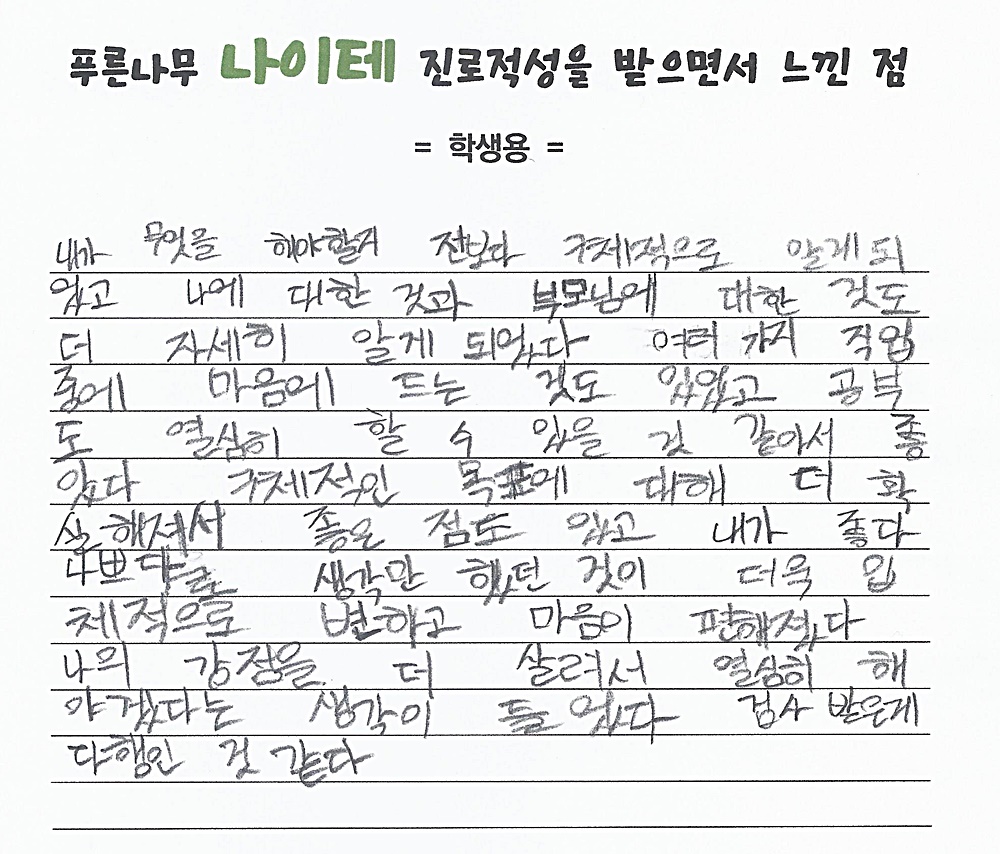 푸른나무 나이테 진로적성을 받으면서 느낀 점
= 학생용 =
내가 무엇을 해야할지 전보다 구체적으로 알게 되
었고 나에 대한 것과 부모님에 대한 것도
더 자세히 알게 되었다 여러 가지 직업
중에 마음에 드는 것도 있었고 공부
도 열심히 할 수 있을 것 같아서 좋
았다 구체적인 목표에 대해 더 확
실해져서 좋은 점도 있고 내가 좋다
나쁘다를 생각만 했던 것이 더욱 입
체적으로 변하고 마음이 편해졌다
나의 강점을 더 살려서 열심히 해
야겠다는 생각이 들었다 검사 받은게
다행인 것 같다